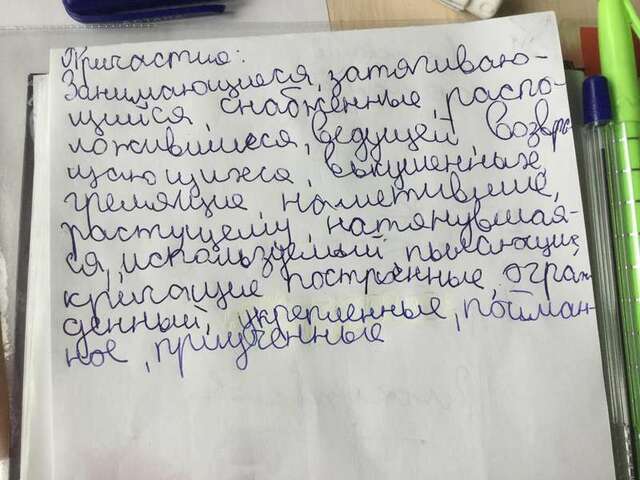 Причастие:
Занимающиеся, затягиваю-
щийся, снабженные, распо-
ложившиеся, ведущей, возвра-
щающихся, вкушенных,
гремящие, наметившие,
растущему, натянувшая-
ся, используемый,
кричащие, построенные, ограж-
денный, укрепленные, пойман-
ное, приученные